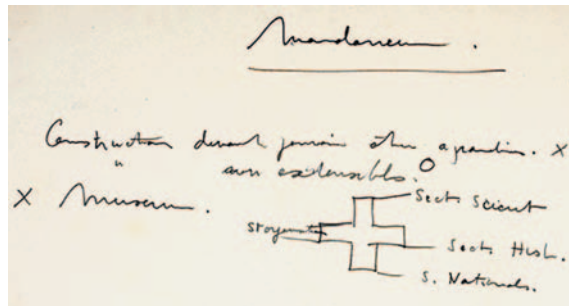 Mundaneum.
Construction devant pouvoir être agrandie. X
" non extensible. O
X Museum.
Sect. Scient
Sect. Hist.
S. Nationale.